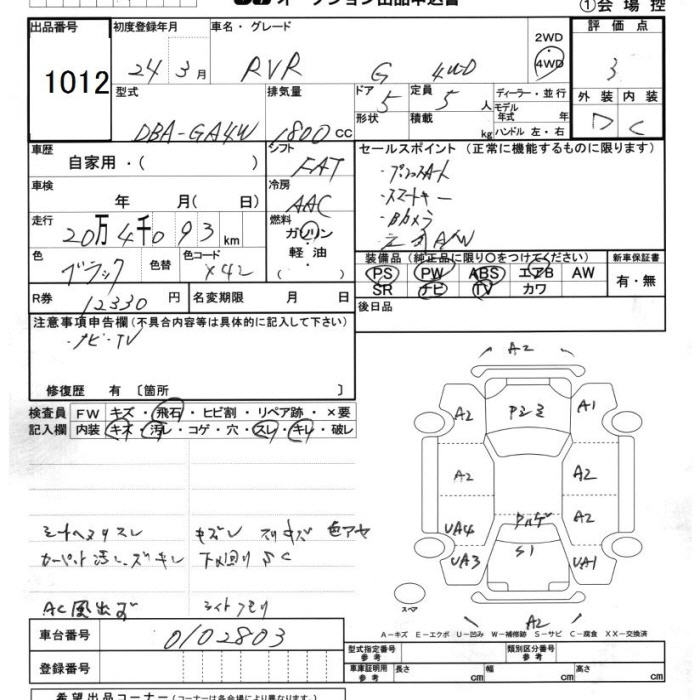 オークション出品申込書
①会場控
出品番号
1012
初度登録年月
24年3月
車名・グレード
RVR G 4WD
2WD
4WD
評価点
3
型式
DBA-GA4W
排気量
1800cc
ドア
5
定員
5人
形状
積載
kg
ディーラー・並行
モデル年式 年
ハンドル 左・右
外装
D
内装
C
車歴
自家用・( )
シフト
FAT
セールスポイント (正常に機能するものに限ります)
・プッシュスタート
・スマートキー
・Bカメラ
車検
年 月( 日)
冷房
AAC
走行
20万4千093km
燃料
ガソリン
軽・油
( )
色
ブラック
色替
色コード
X42
装備品 (純正品に限り○をつけてください)
PS PW ABS エアB AW
SR ナビ TV カワ
新車保証書
有・無
R券
12330円
名変期限 月 日
後日品
注意事項申告欄 (不具合内容等は具体的に記入して下さい)
・ナビ・TV
修復歴 有 〔箇所 〕
検査員記入欄
FW キズ・飛石・ヒビ割・リペア跡・×要
内装 キズ・汚レ・コゲ・穴・スレ・キレ・破レ
シートヘタリスレ
キズレ スリキズ 色アセ
カーペット汚レ・スレ・キレ
下回りSC
AC風出ず
ライトクモリ
A2
A2
A1
A2
A2
A2
UA4
S1
UA3
UA1
A2
スペア
A-キズ E-エクボ U-凹み W-補修跡 S-サビ C-腐食 XX-交換済
車台番号
0102803
登録番号
型式指定番号 参考
類別区分番号 参考
車庫証明用 参考
長さ cm
幅 cm
高さ cm
希望出品コーナー (コーナーは各会場により異なります)